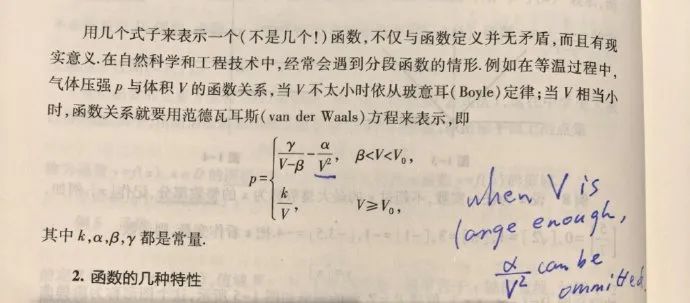 用几个式子来表示一个(不是几个!)函数,不仅与函数定义并无矛盾,而且有现
实意义.在自然科学和工程技术中,经常会遇到分段函数的情形.例如在等温过程中,
气体压强 p 与体积 V 的函数关系,当 V 不太小时依从玻意耳(Boyle)定律;当 V 相当小
时,函数关系就要用范德瓦耳斯(van der Waals)方程来表示,即
p={ γ/(V-β) - α/V², β<V<V₀,
k/V, V≥V₀,
其中 k,α,β,γ 都是常量.
2. 函数的几种特性
when V is
large enough,
α/V² can be
ommitted.